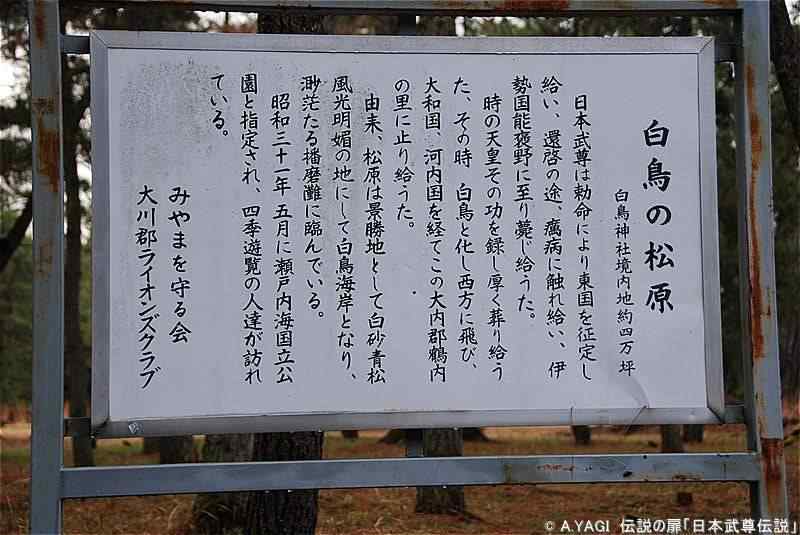 白鳥の松原
白鳥神社境内地約四万坪
日本武尊は勅命により東国を征定し
給い、還啓の途、癘病に触れ給い、伊
勢国能褒野に至り薨じ給うた。
時の天皇その功を録し厚く葬り給う
た、その時 白鳥と化し西方に飛び、
大和国、河内国を経てこの大内郡鶴内
の里に止り給うた。
由来、松原は景勝地として白砂青松
風光明媚の地にして白鳥海岸となり、
渺茫たる播磨灘に臨んでいる。
昭和三十一年 五月に瀬戸内海国立公
園と指定され、四季遊覧の人達が訪れ
ている。
みやまを守る会
大川郡ライオンズクラブ
© A.YAGI 伝説の扉「日本武尊伝説」